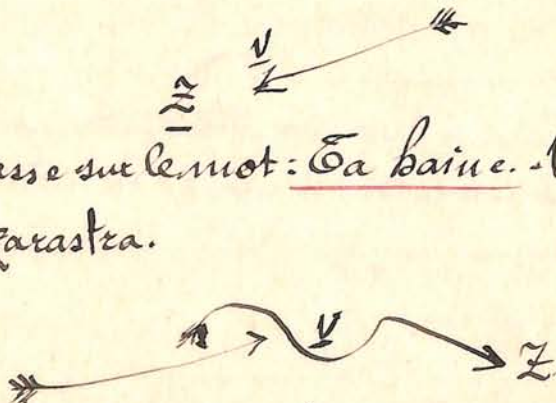 V
Z
esse sur le mot: Ta haine.
Zarastra.
V
Z